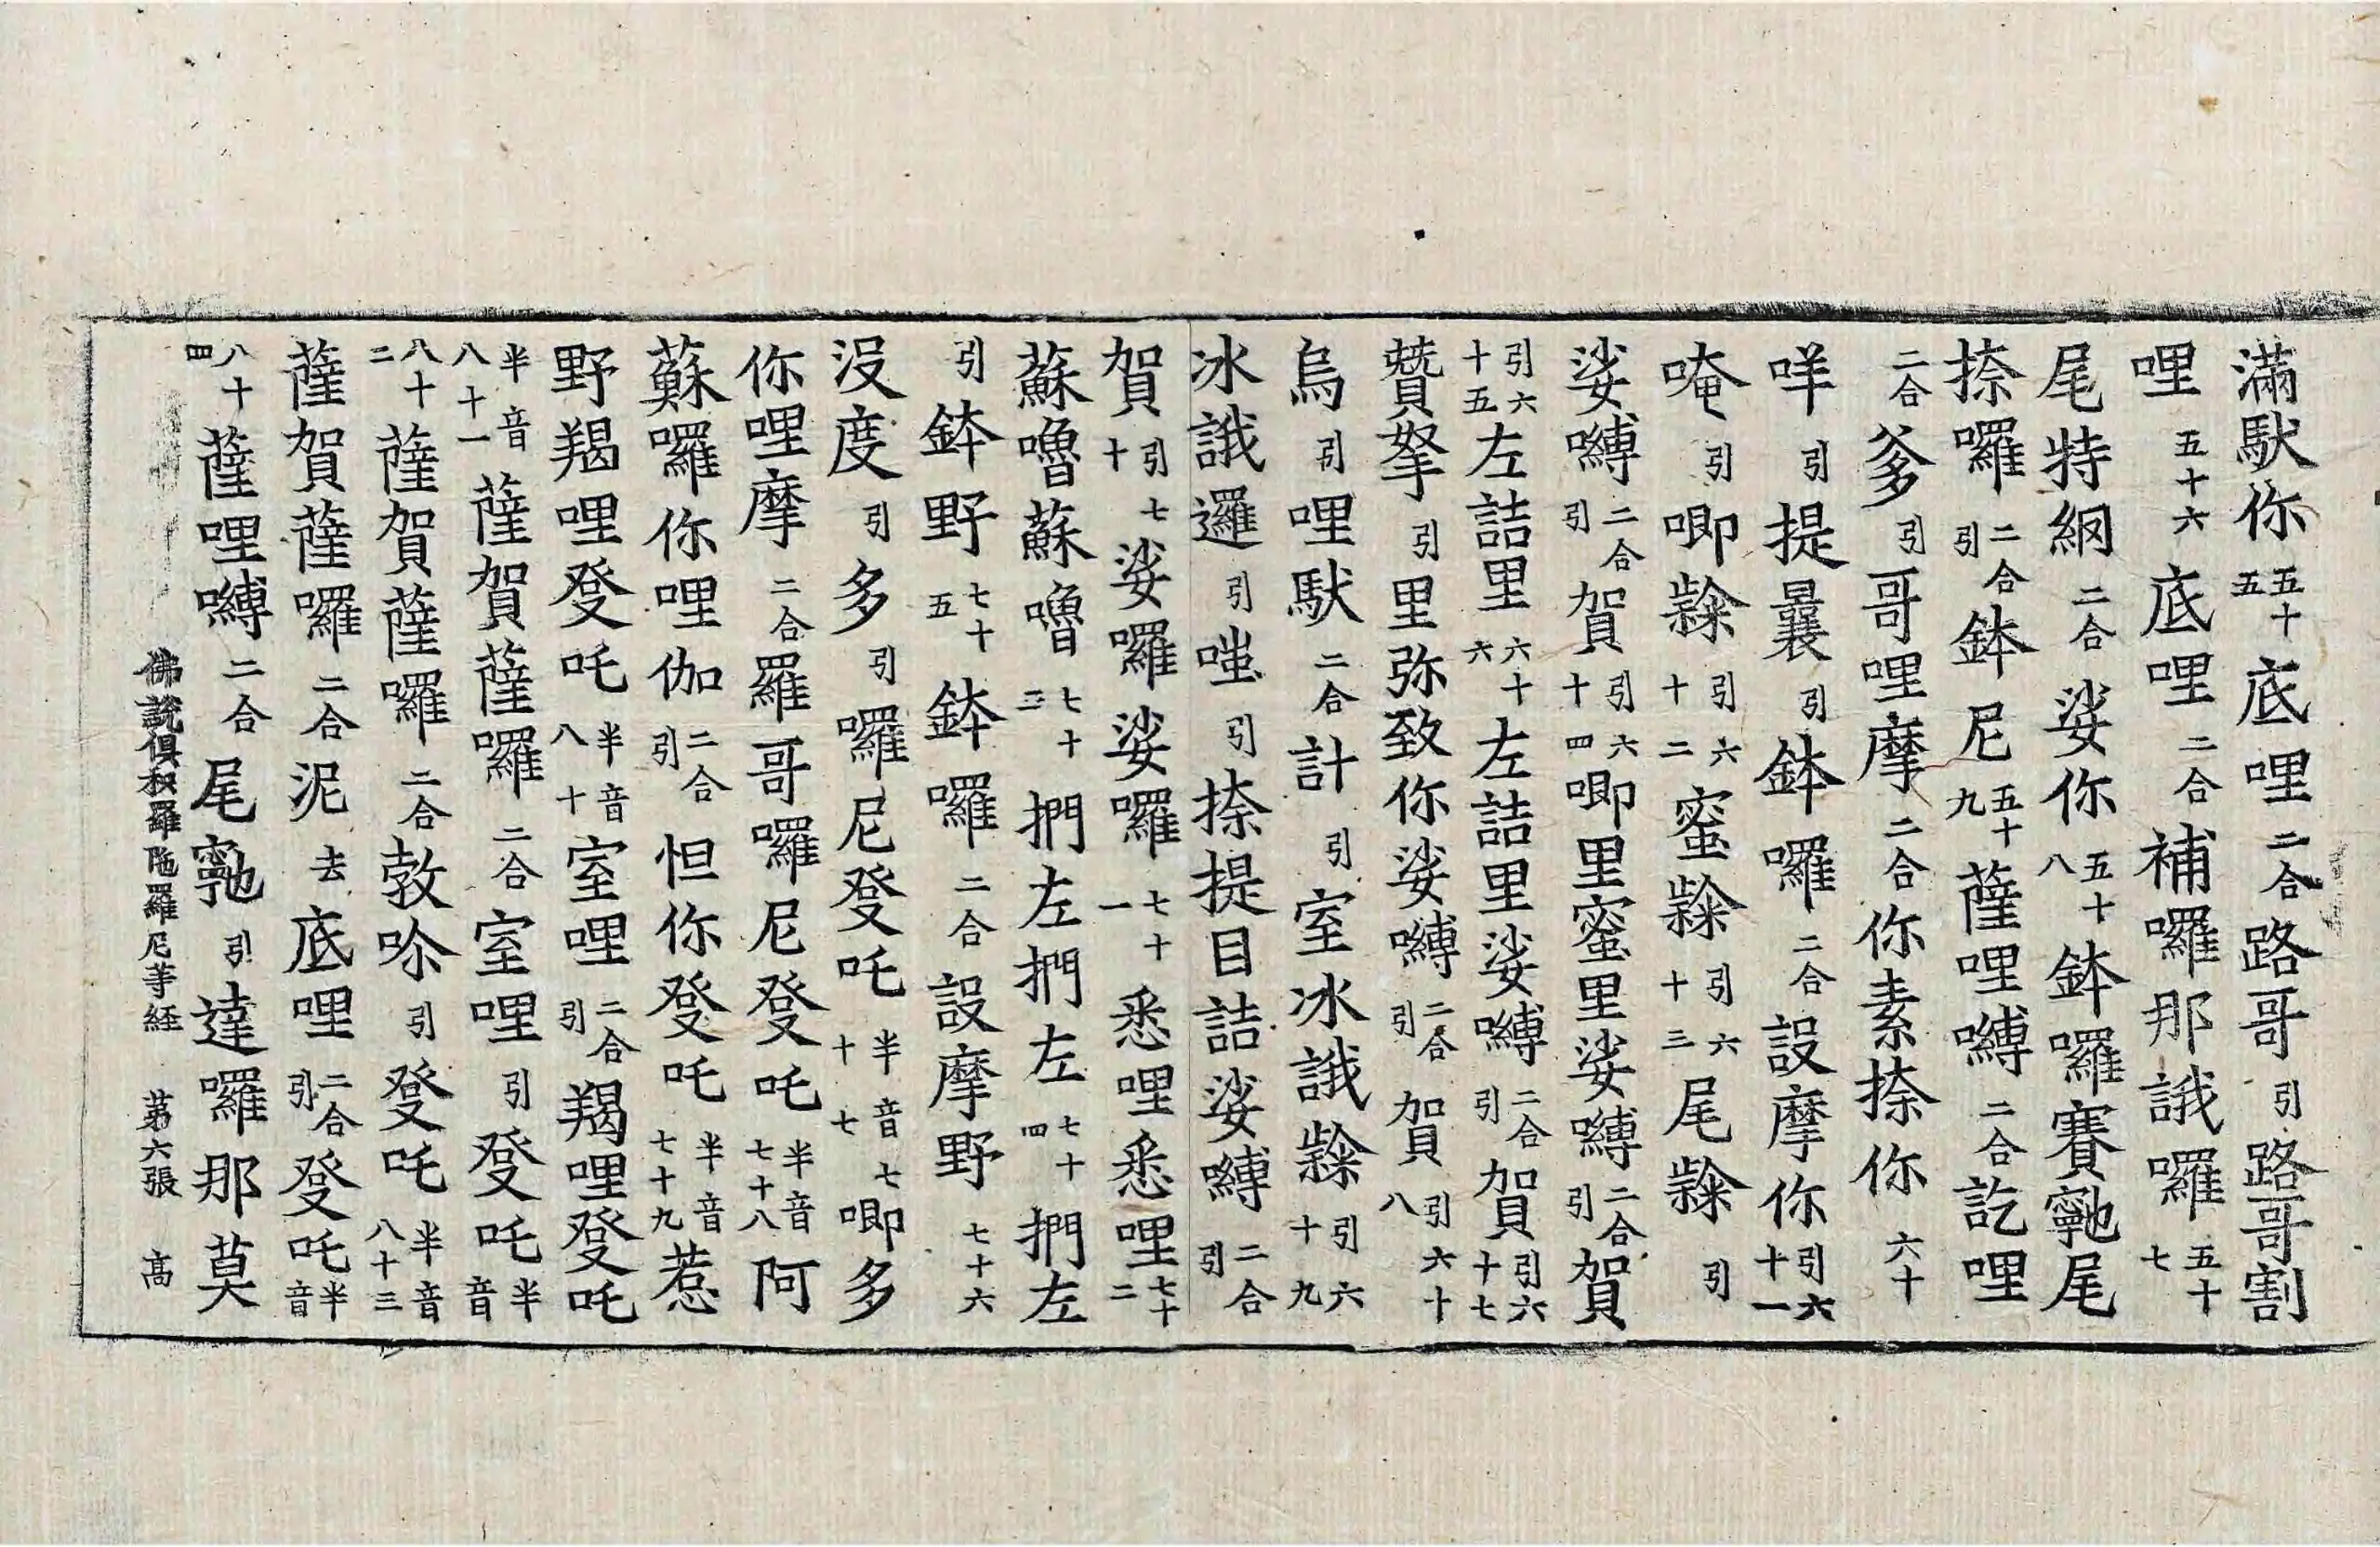 滿馱你五十五底哩二合路哥引路哥割
哩五十六底哩二合補囉那誐囉五十七
尾特網二合娑你五十八鉢囉賽㝹尾
捺囉二合引鉢尼五十九薩哩嚩二合訖哩
二合爹引哥哩摩二合你素捺你六十
吽引提曩引鉢囉二合設摩你引六十一
唵引唧㖿引六十二蜜㖿引六十三尾㖿引
娑嚩二合引賀引六十四唧里蜜里娑嚩二合引賀
引六十五左詰里六十六左詰里娑嚩二合引賀引六十七
贊拏引里弥致你娑嚩二合引賀引六十八
烏引哩馱二合計引室冰誐引六十九
冰誐邏引嗤引捺提目詰娑嚩二合引
賀引七十娑囉娑囉七十一悉哩悉哩七十二
蘇嚕蘇嚕七十三捫左捫左七十四捫左
引鉢野七十五鉢囉二合設摩野七十六
没度引多引囉尼發吒半音七十七唧多
你哩摩二合羅哥囉尼發吒半音七十八阿
蘇囉你哩伽二合引怛你發吒半音七十九惹
野羯哩發吒半音八十室哩二合引羯哩發吒
半音八十一薩賀薩囉二合室哩引發吒半音
八十二薩賀薩囉二合敦唥引發吒半音八十三
薩賀薩囉二合泥去底哩二合引發吒半音
八十四薩哩嚩二合尾引達囉那莫
佛說俱枳羅陁羅尼等経 苐六張 髙